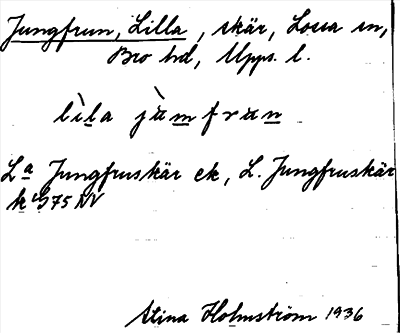 Jungfrun, Lilla, skär, Lossa sn,
Bro hd, Upps. l.
lìla jùmfrun
La Jungfruskär ek, L. Jungfruskär
k 975 NV
Stina Holmström 1936